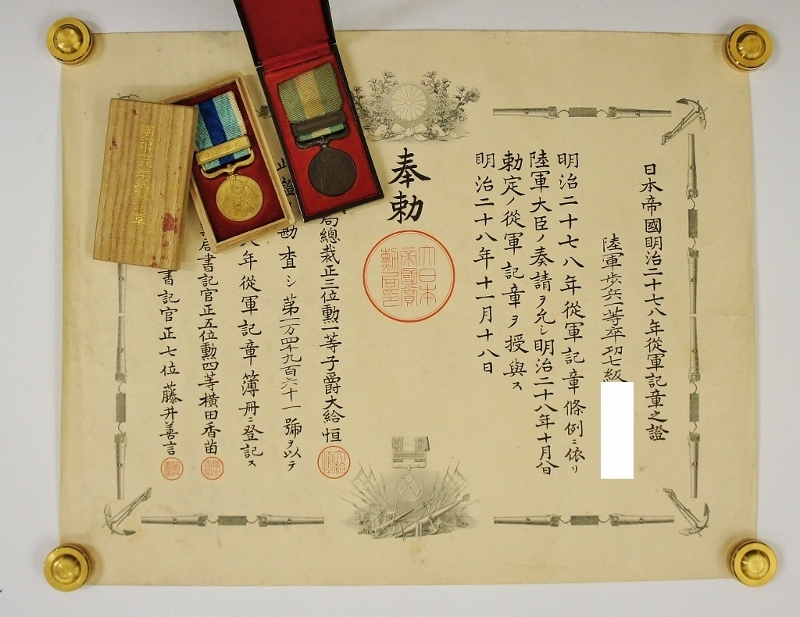 日本帝國明治二十七八年從軍記章之證
陸軍歩兵一等卒功七級
明治二十七八年從軍記章條例ニ依リ
陸軍大臣ノ奏請ヲ允シ明治二十八年十月八日
勅定ノ從軍記章ヲ授與ス
明治二十八年十一月十八日
奉勅
大日本
帝國賞
勲局印
局總裁正三位勲一等子爵大給恒
此證ヲ勘査シ第一万四千九百六十一號ヲ以テ
八年從軍記章簿冊ニ登記ス
書記官正五位勲四等横田香苗
書記官正七位藤井善言